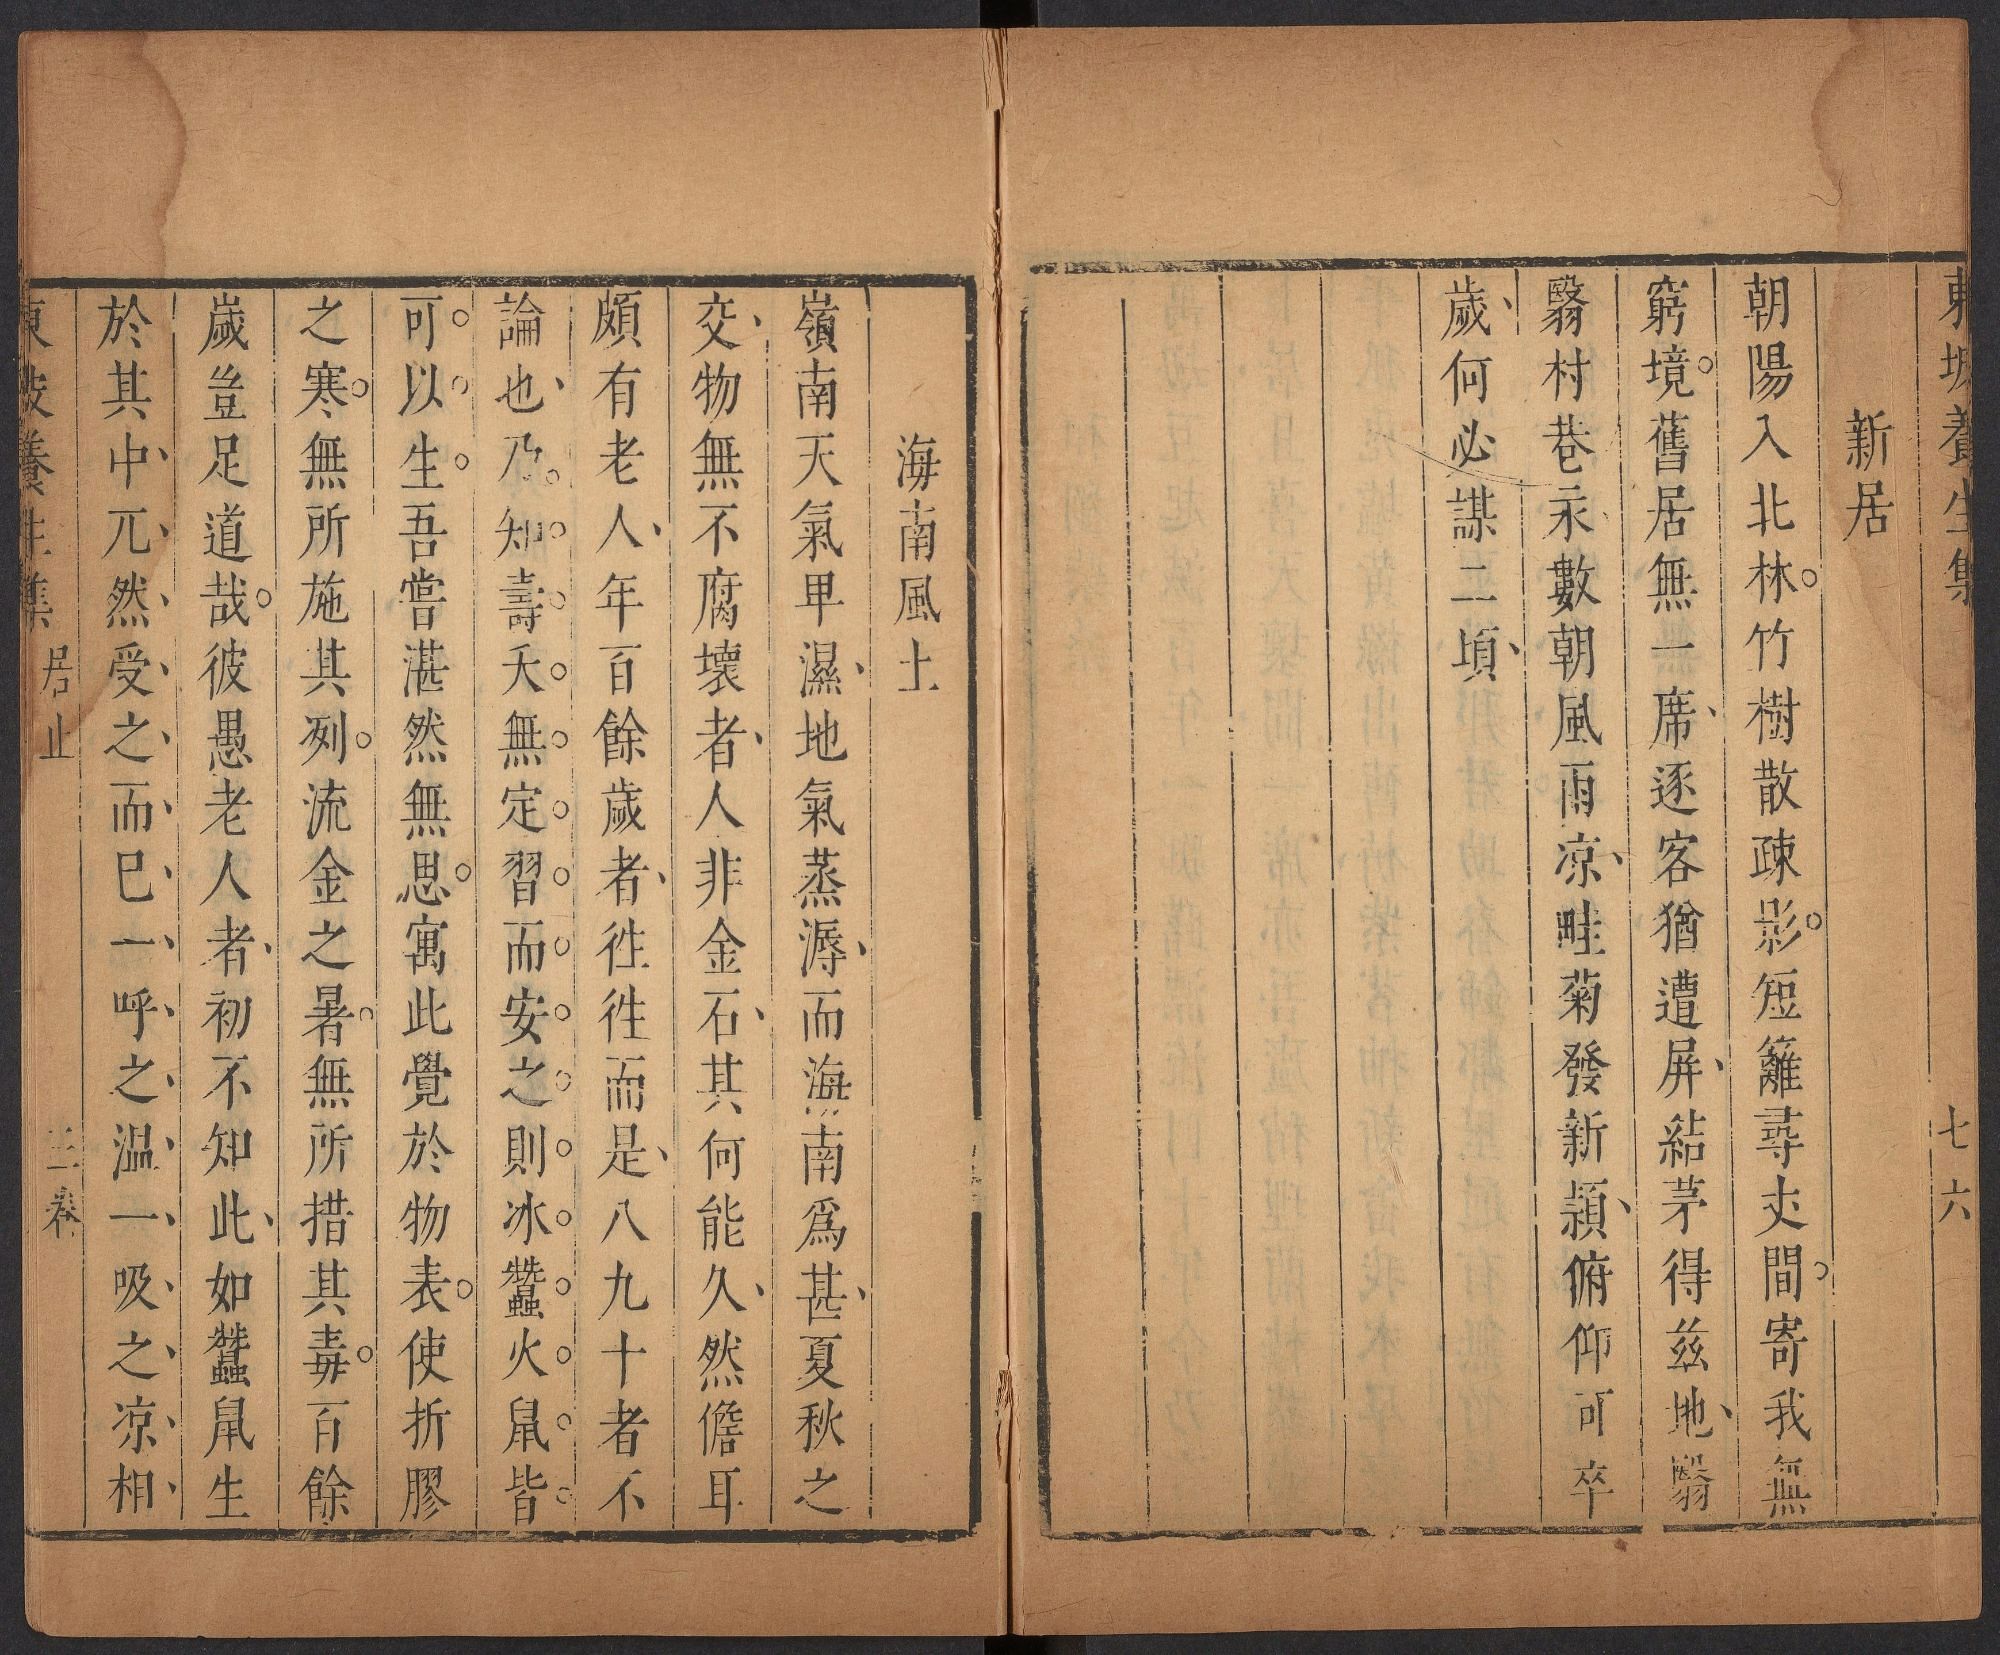 東坡養生集
七六
新居
朝陽入北林竹樹散疎影短籬尋丈間寄我無
窮境舊居無一席逐客猶遭屏結茅得茲地翳
翳村巷永數朝風雨凉畦菊發新穎俯仰可卒
歲何必謀二頃
海南風土
嶺南天氣卑濕地氣蒸溽而海南爲甚夏秋之
交物無不腐壞者人非金石其何能久然儋耳
頗有老人年百餘歲者徃徃而是八九十者不
論也乃知壽夭無定習而安之則冰蠶火鼠皆
可以生吾嘗湛然無思思寓此覺於物表使折膠
之寒無所施其冽流金之暑無所措其毒百餘
歲豈足道哉彼愚老人者初不知此如蠶鼠生
於其中兀然受之而巳一呼之温一吸之凉相
東坡養生集
居止
三卷